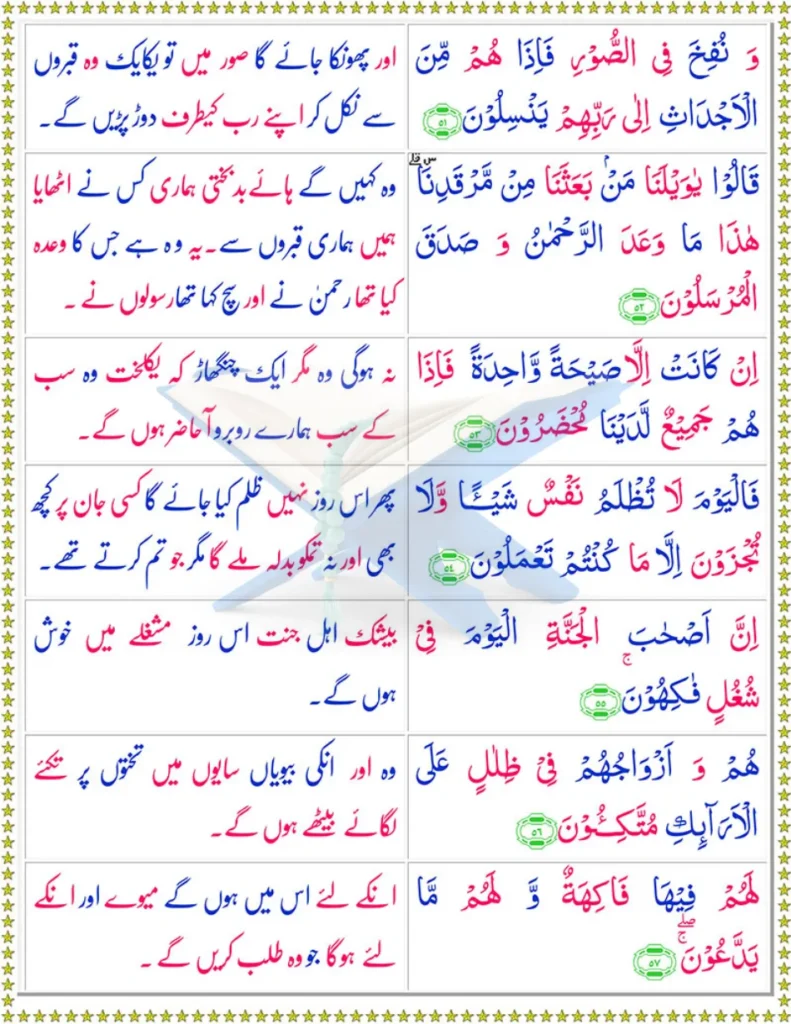 وَ نُفِخَ فِی الصُّوْرِ فَاِذَا هُمْ مِّنَ
الْاَجْدَاثِ اِلٰی رَبِّهِمْ یَنْسِلُوْنَ ﴿۵۱﴾
اور پھونکا جائے گا صور میں تو یکایک وہ قبروں
سے نکل کر اپنے رب کیطرف دوڑ پڑیں گے۔
قَالُوْا یٰوَیْلَنَا مَنْۢ بَعَثَنَا مِنْ مَّرْقَدِنَا ۜ ۘ
هٰذَا مَا وَعَدَ الرَّحْمٰنُ وَ صَدَقَ
الْمُرْسَلُوْنَ ﴿۵۲﴾
وہ کہیں گے ہائے بدبختی ہماری کس نے اٹھایا
ہمیں ہماری قبروں سے۔ یہ وہ ہے جس کا وعدہ
کیا تھا رحمنٰ نے اور سچ کہا تھا رسولوں نے ۔
اِنْ كَانَتْ اِلَّا صَیْحَةً وَّاحِدَةً فَاِذَا
هُمْ جَمِیْعٌ لَّدَیْنَا مُحْضَرُوْنَ ﴿۵۳﴾
نہ ہوگی وہ مگر ایک چنگھاڑ کہ یکلخت وہ سب
کے سب ہمارے روبرو آ حاضر ہوں گے۔
فَالْیَوْمَ لَا تُظْلَمُ نَفْسٌ شَیْـًٔا وَّلَا
تُجْزَوْنَ اِلَّا مَا كُنْتُمْ تَعْمَلُوْنَ ﴿۵۴﴾
پھر اس روز نہیں ظلم کیا جائے گا کسی جان پر کچھ
بھی اور نہ تمکو بدلہ ملے گا مگر جو تم کرتے تھے۔
اِنَّ اَصْحٰبَ الْجَنَّةِ الْیَوْمَ فِیْ
شُغُلٍ فٰكِهُوْنَ ۚ ﴿۵۵﴾
بیشک اہل جنت اس روز مشغلے میں خوش
ہوں گے۔
هُمْ وَ اَزْوَاجُهُمْ فِیْ ظِلٰلٍ عَلَی
الْاَرَآىِٕكِ مُتَّكِـُٔوْنَ ﴿۵۶﴾
وہ اور انکی بیویاں سایوں میں تختوں پر تکئے
لگائے بیٹھے ہوں گے۔
لَهُمْ فِیْهَا فَاكِهَةٌ وَّ لَهُمْ مَّا
یَدَّعُوْنَ ۚۖ ﴿۵۷﴾
انکے لئے اس میں ہوں گے میوے اور انکے
لئے ہوگا جو وہ طلب کریں گے ۔